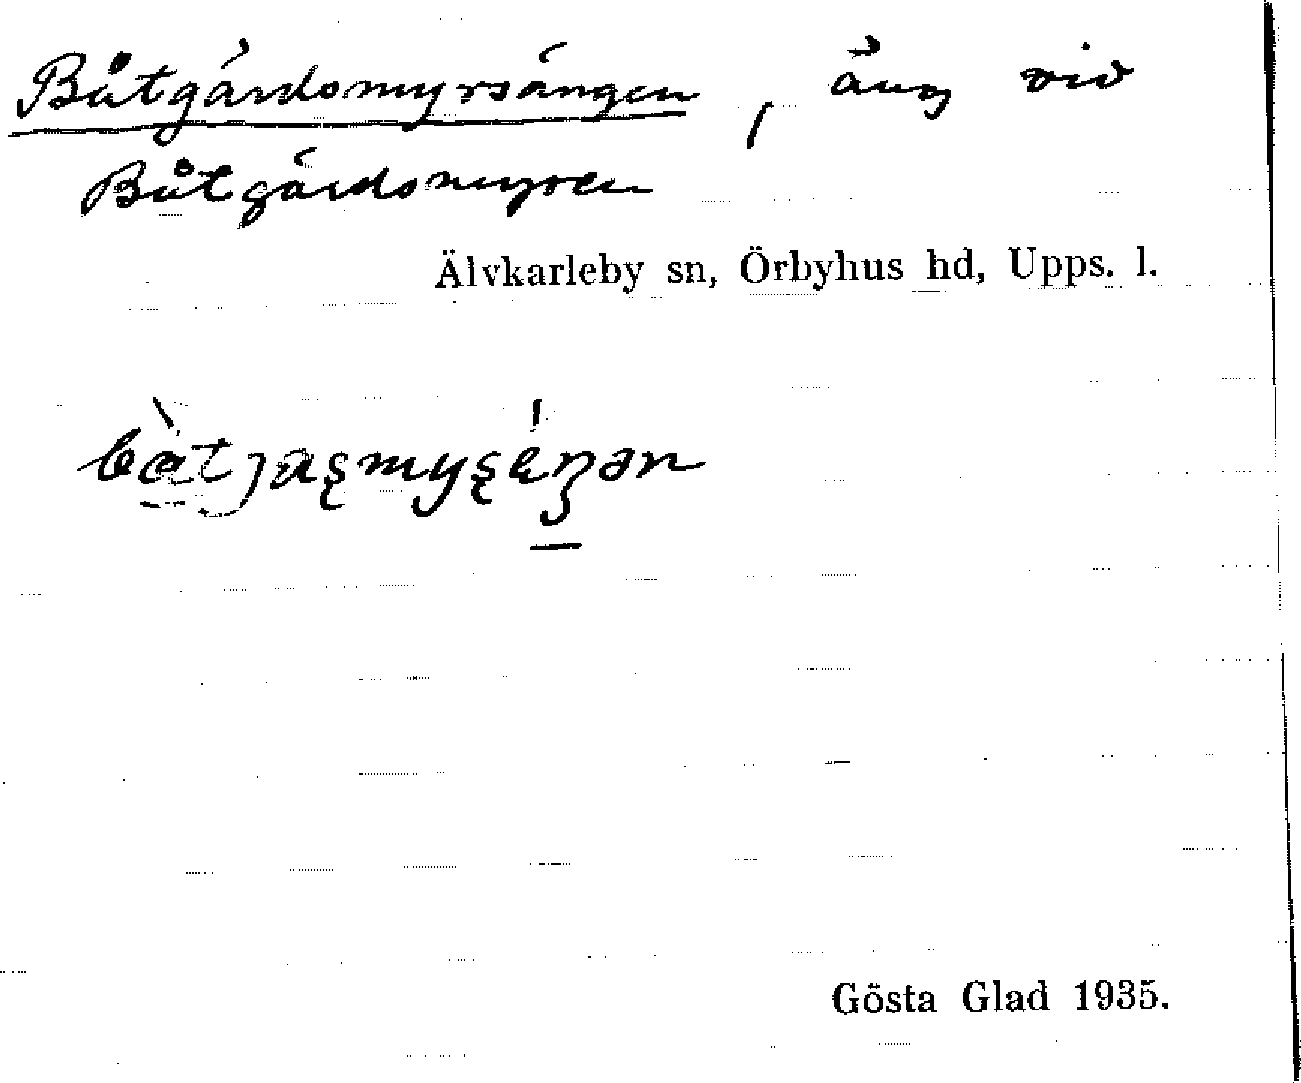 Båtgårdsmyrsängen, äng vid
Båtgårdsmyren
Älvkarleby sn, Örbyhus hd, Upps. l.
Gösta Glad 1935.